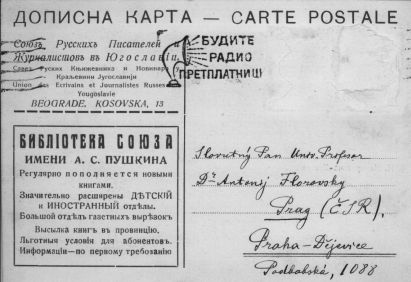 ДОПИСНА КАРТА — CARTE POSTALE
Союзъ Русскихъ Писателей и
Журналистовъ въ Югославіи
Савез Руских Књижевника и Новинара у
Краљевини Југославији
Union des Ecrivains et Journalistes Russes
Yougoslavie
BEOGRADE, KOSOVSKA, 13
БУДИТЕ
РАДИО
ПРЕТПЛАТНИЦИ
БИБЛІОТЕКА СОЮЗА
ИМЕНИ А. С. ПУШКИНА
Регулярно пополняется новыми
книгами.
Значительно расширены ДѢТСКІЙ
и ИНОСТРАННЫЙ отдѣлы.
Большой отдѣлъ газетныхъ вырѣзокъ
Высылка книгъ въ провинцію.
Льготныя условія для абонентовъ.
Информаціи—по первому требованію
Slovutný Pan Univ. Profesor
Dr Antonij Florovsky
Prag (ČSR).
Praha-Dějvice
Podbabská, 1088